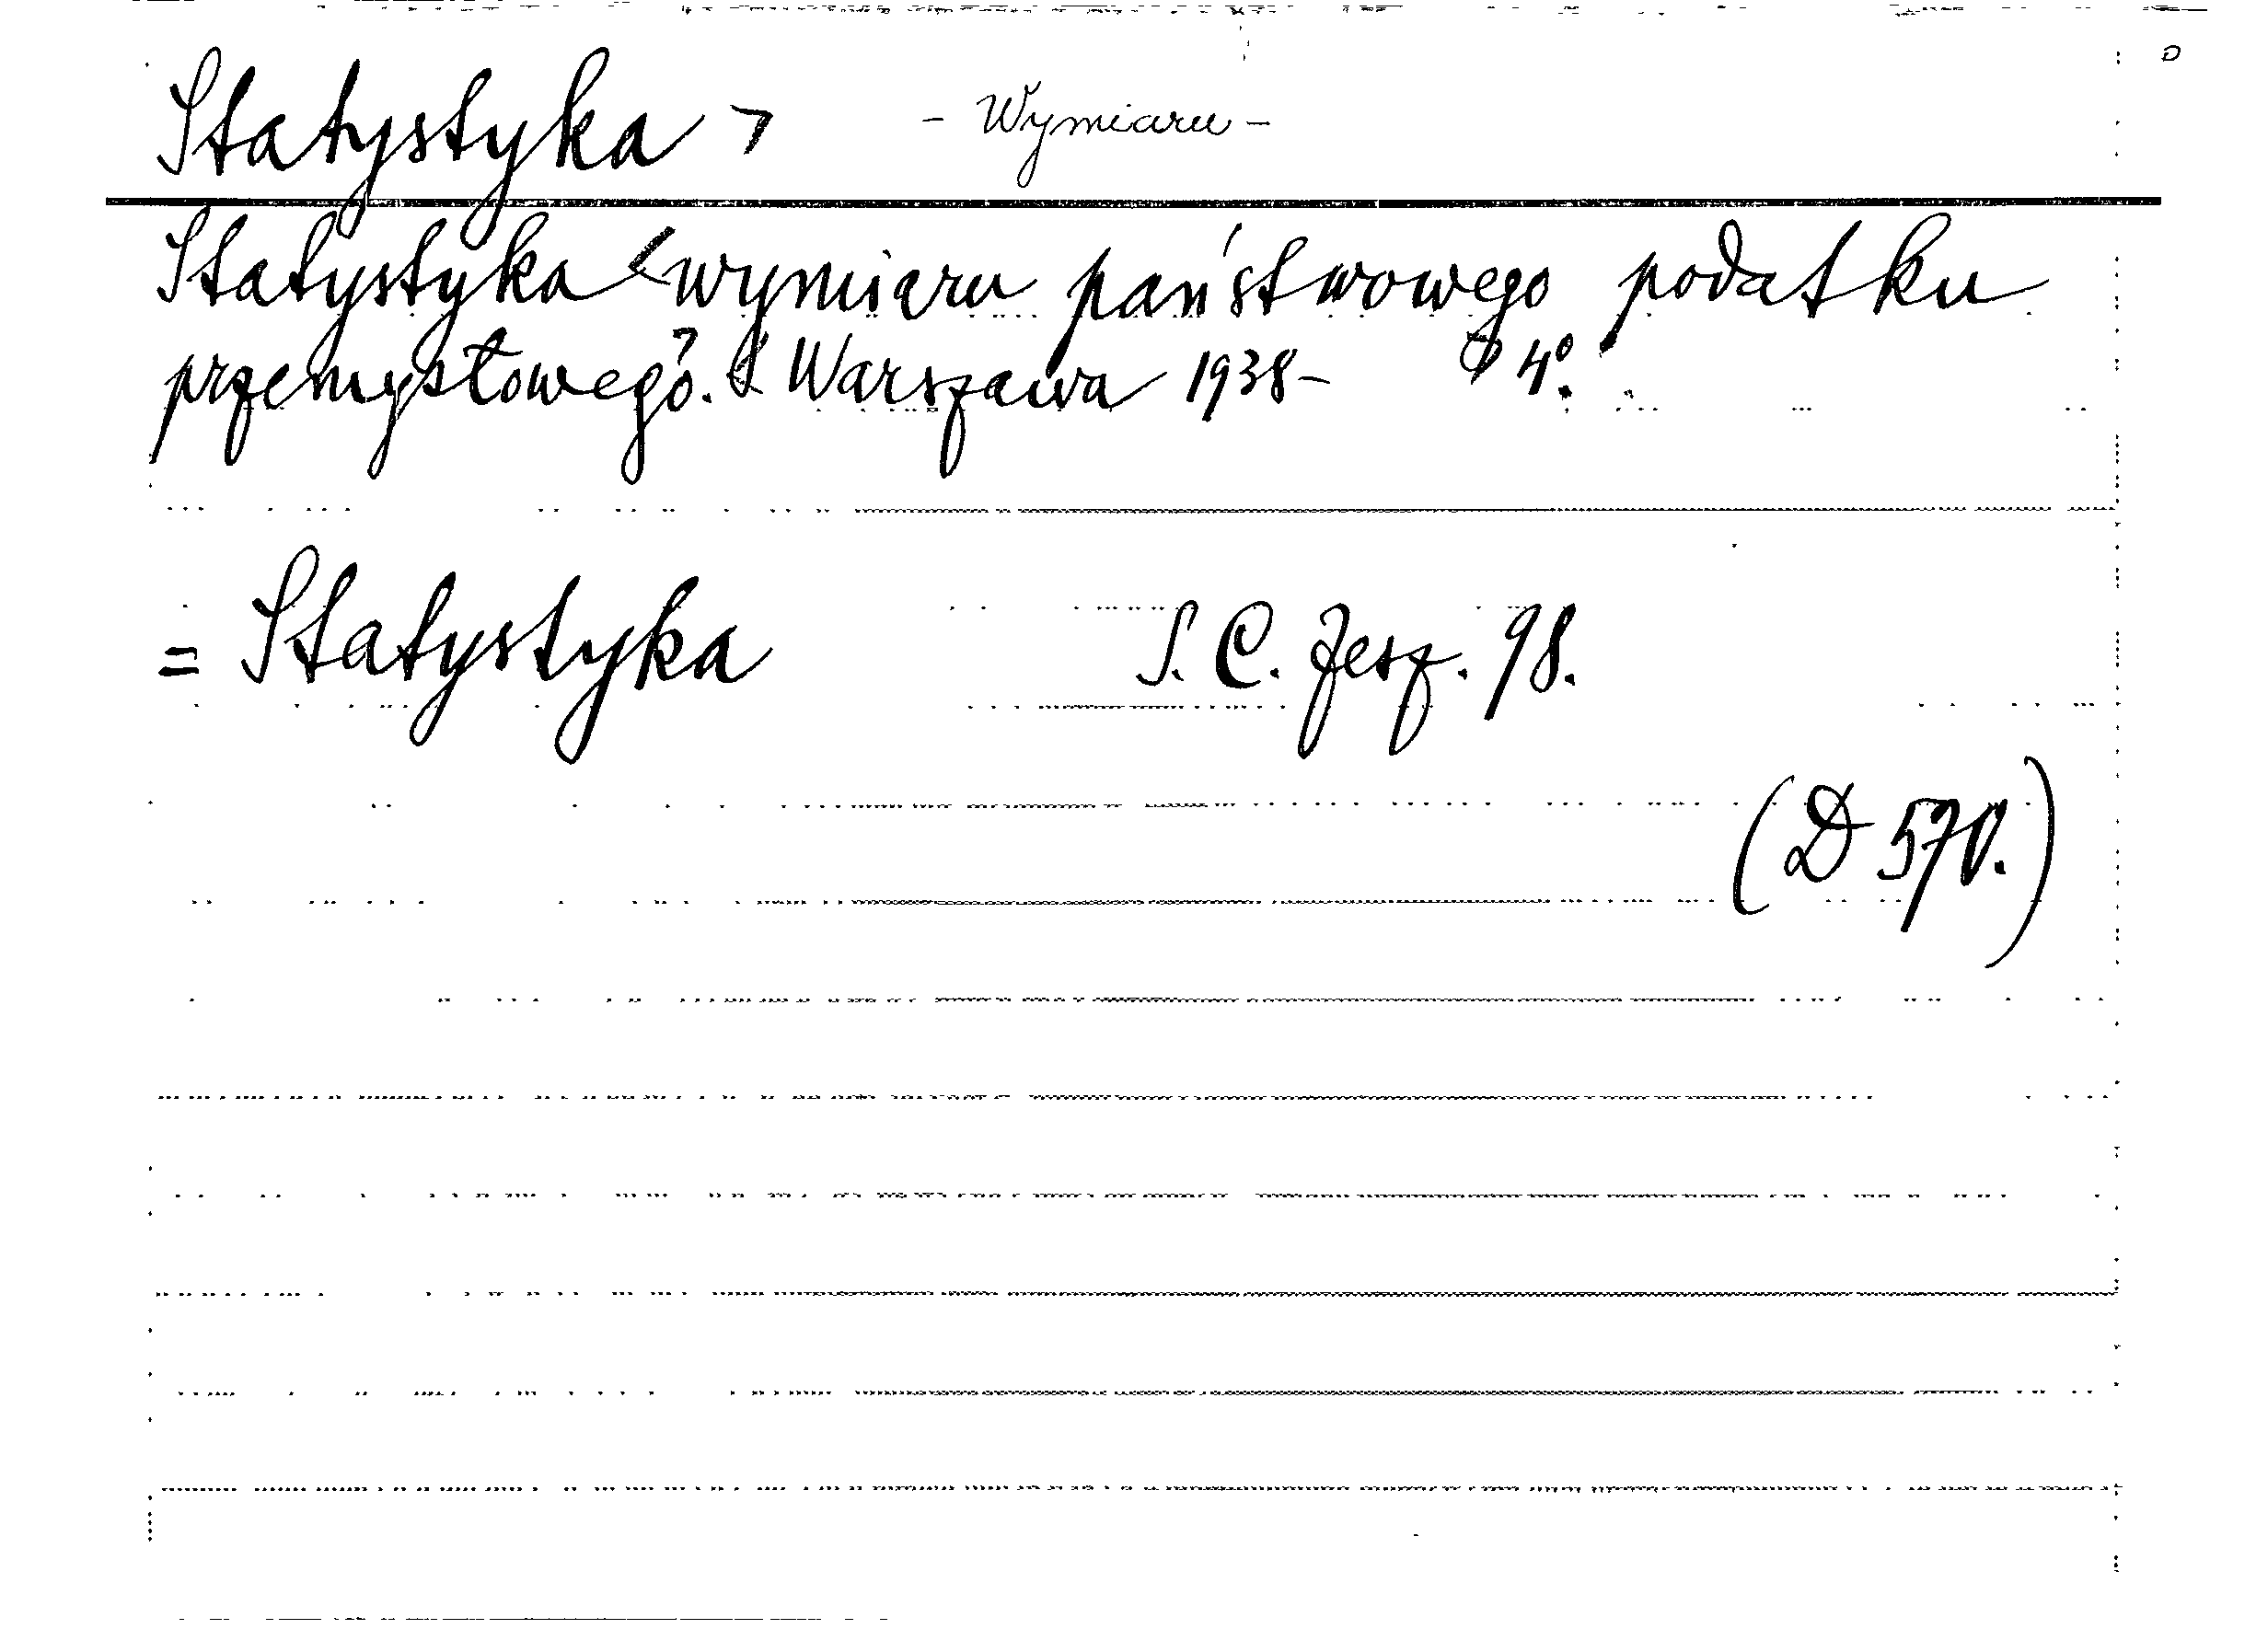 Statystyka > - Wymiaru -
Statystyka <wymiaru państwowego podatku
przemysłowego.> Warszawa 1938- 4º.
= Statystyka S. C. Zesz. 98.
(D 570.)